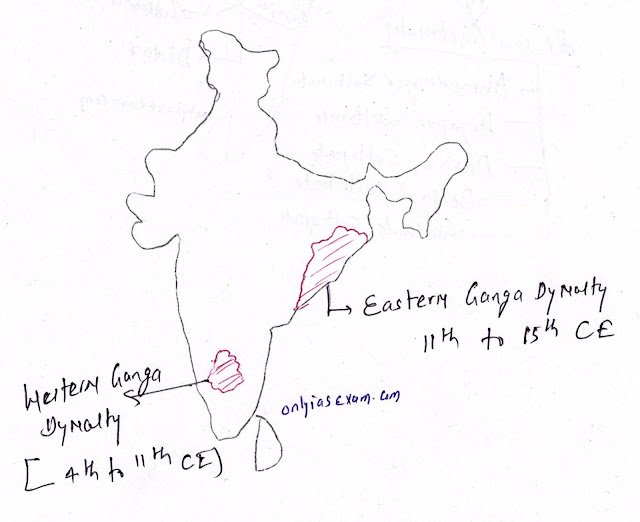 Eastern Ganga Dynasty
11th to 15th CE
Western Ganga
Dynasty
[4th to 11th CE]
onlyiasexam.com